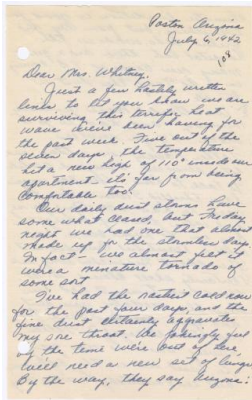 Poston Arizona
July 6, 1942
108
Dear Mrs. Whitney,
Just a few hastily written
lines to let you know we are
surviving this terrific heat
wave we've been having for
the past week. Five out of the
seven days the temperature
hit a new high of 110° inside our
apartment it's far from being
comfortable too.
Our daily dust storms have
some what ceased, but Friday
night we had one that almost
made up for the stormless days.
In fact - we almost feel it
was a menature tornado of
some sort.
I've had the nastiest cold now
for the past four days, and the
fine dust certainly aggravates
my sore throat. We jokingly feel
by the time we're out of here
we'll need a new set of lungs.
By the way, they say Arizona